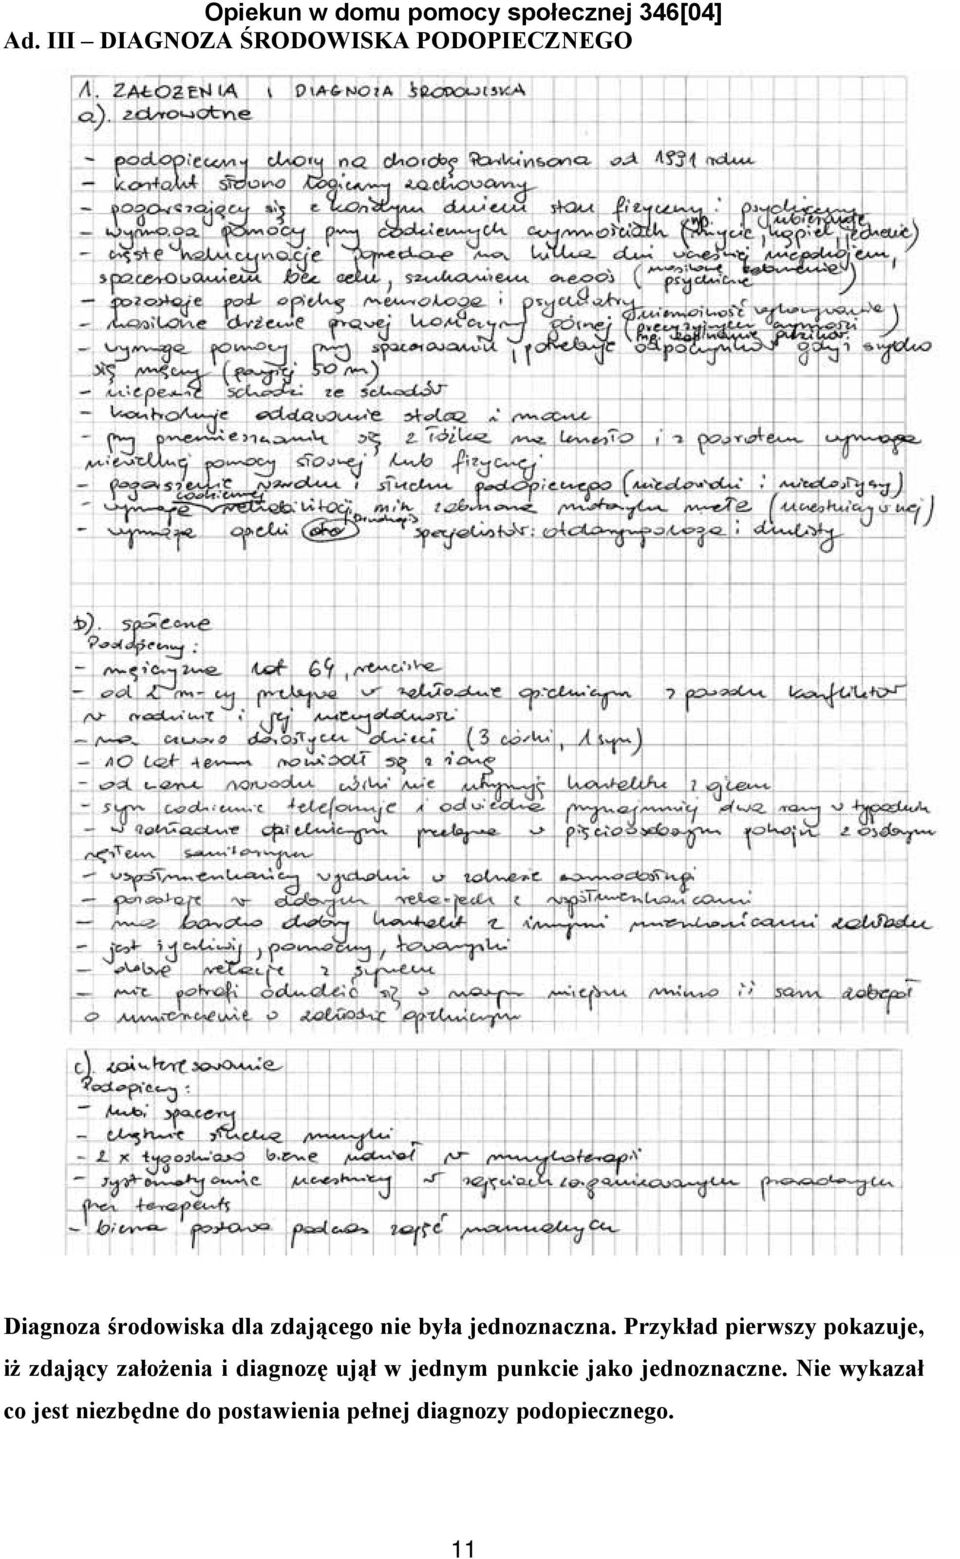 Opiekun w domu pomocy społecznej 346[04]
Ad. III – DIAGNOZA ŚRODOWISKA PODOPIECZNEGO
1. ZAŁOŻENIA I DIAGNOZA ŚRODOWISKA
a). zdrowotne
- podopieczny chory na chorobę Parkinsona od 1991 roku
- kontakt słowno logiczny zachowany
- pogarszający się z każdym dniem stan fizyczny i psychiczny
- wymaga pomocy przy codziennych czynnościach (np. mycie, kąpiel, ubieranie, jedzenie)
- częste halucynacje poprzedzone na kilka dni wcześniej niepokojem,
spacerowaniem bez celu, szukaniem czegoś (nasilone zaburzenie psychiczne)
- pozostaje pod opieką neurologa i psychiatry
- nasilone drżenie prawej kończyny górnej (niemożność wykonywania precyzyjnych czynności np. zapinanie guzików)
- wymaga pomocy przy spacerowaniu, potrzebuje odpoczynków gdyż szybko
się męczy (powyżej 50 m)
- niepewnie schodzi ze schodów
- kontroluje oddawanie stolca i moczu
- przy przemieszczaniu się z łóżka na krzesło i z powrotem wymaga
niewielkiej pomocy słownej lub fizycznej
- pogorszenie wzroku i słuchu podopiecznego (niedowidzi i niedosłyszy)
- wymaga codziennej rehabilitacji, min zaburzona motoryka mała
- wymaga opieki specjalistów: otolaryngologa i okulisty
b). społeczne
Podopieczny:
- mężczyzna lat 64, rencista
- od 2 m-cy przebywa w zakładzie opiekuńczym z powodu konfliktów
w rodzinie i jej niewydolności
- ma czworo dorosłych dzieci (3 córki, 1 syn)
- 10 lat temu rozwiódł się z żoną
- od czasu rozwodu córki nie utrzymują kontaktu z ojcem
- syn codziennie telefonuje i odwiedza przynajmniej dwa razy w tygodniu
- w zakładzie opiekuńczym przebywa w pięcioosobowym pokoju z osobnym
węzłem sanitarnym
- współmieszkańcy wydolni w zakresie samoobsługi
- pozostaje w dobrych relacjach z współmieszkańcami
- ma bardzo dobry kontakt z innymi mieszkańcami zakładu
- jest życzliwy, pomocny, towarzyski
- dobre relacje z synem
- nie potrafi odnaleźć się w nowym miejscu mimo iż sam zabiegał
o umieszczenie w zakładzie opiekuńczym
c). zainteresowanie
Podopieczny:
- lubi spacery
- chętnie słucha muzyki
- 2 x tygodniowo bierze udział w muzykoterapii
- systematycznie uczestniczy w zajęciach zorganizowanych prowadzonych
przez terapeutę
- bierna postawa podczas zajęć manualnych
Diagnoza środowiska dla zdającego nie była jednoznaczna. Przykład pierwszy pokazuje,
iż zdający założenia i diagnozę ujął w jednym punkcie jako jednoznaczne. Nie wykazał
co jest niezbędne do postawienia pełnej diagnozy podopiecznego.
11